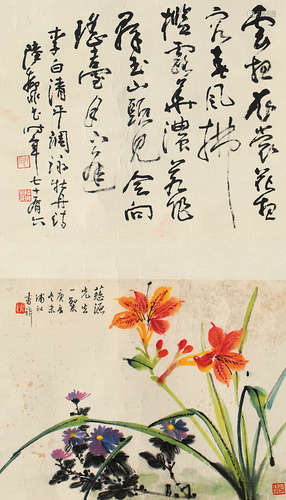 雲想衣裳花想
容春風拂
檻露華濃若非
羣玉山頭見會向
瑤臺月下逢
李白清平調詠牡丹詩
陸 書 年七十有六
先生
一粲
庚辰
冬末
浦江
書旂